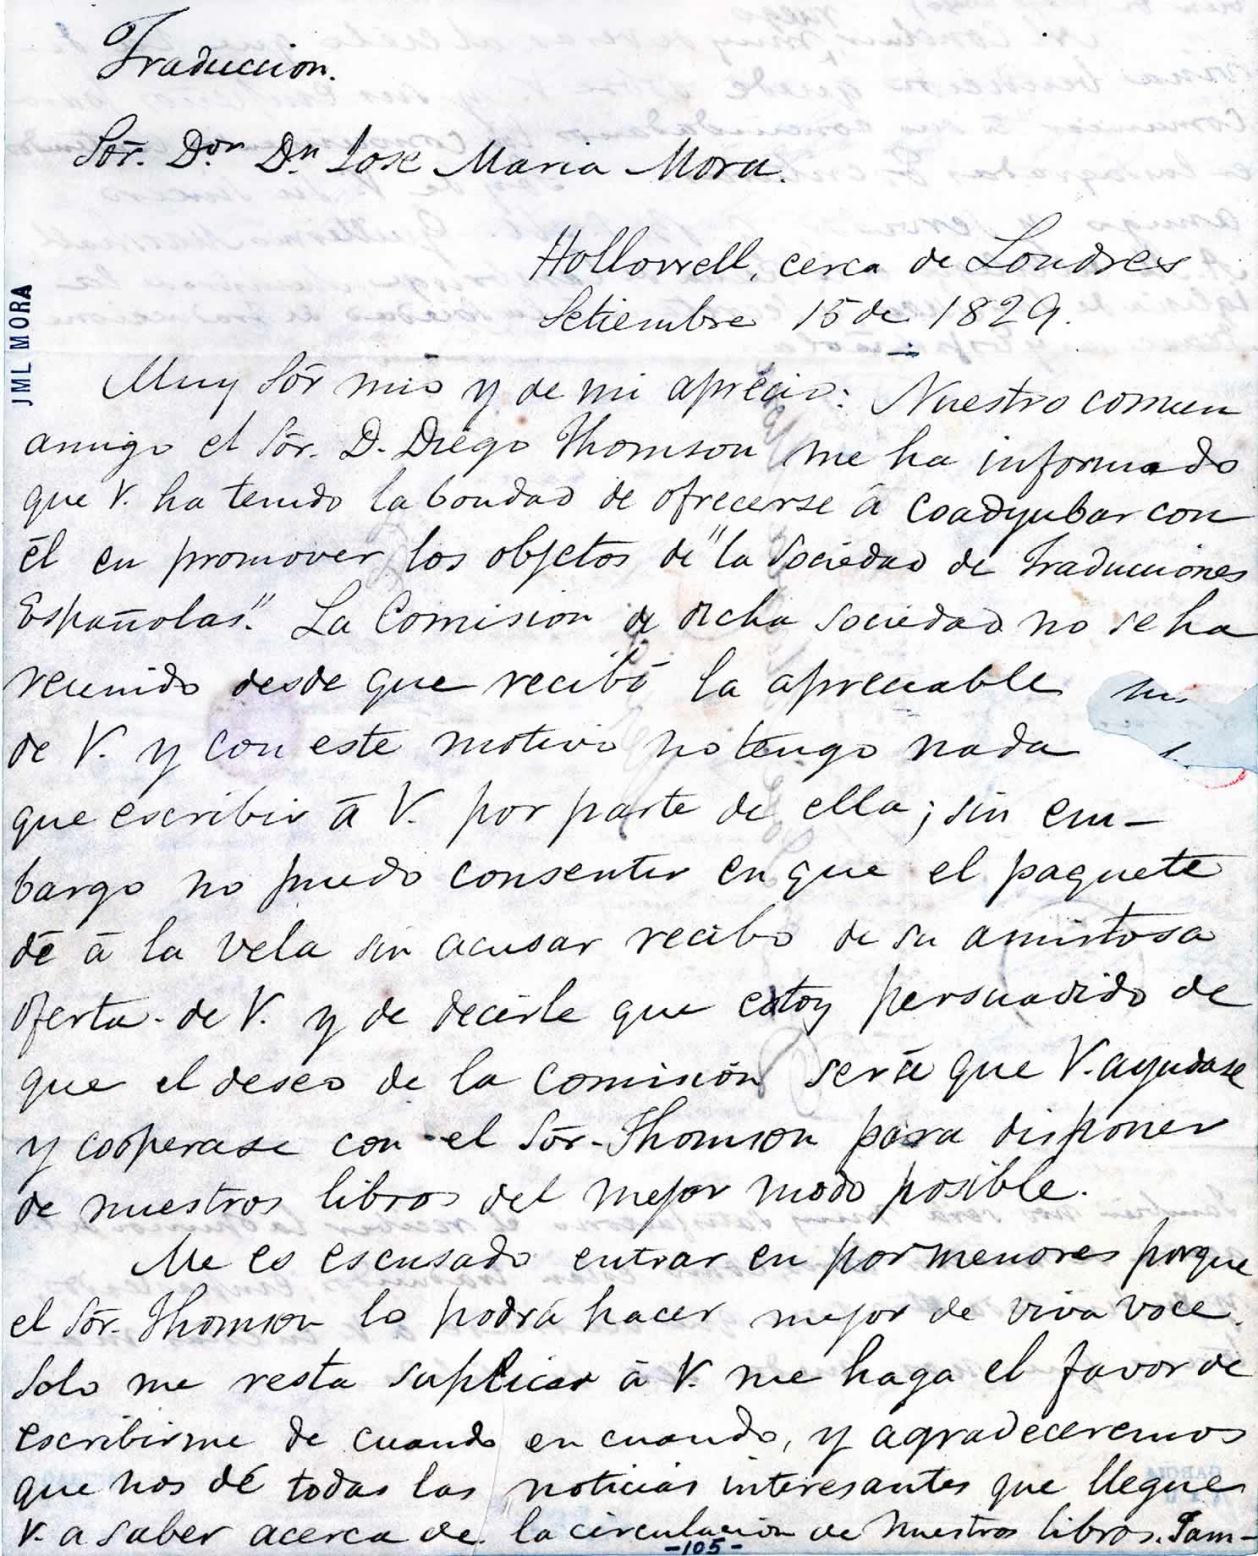 Traduccion.
Sōr. Dor Dn Jose Maria Mora.
Hollowell, cerca de Londres
Setiembre 15 de 1829.
JML MORA
Muy Sōr mio y de mi aprecio: Nuestro comun
amigo el Sōr. D. Diego Thomson me ha informado
que V. ha tenido la bondad de ofrecerse á coadyubar con
él en promover los objetos de "la Sociedad de Traducciones
Españolas". La Comision de dicha sociedad no se ha
reunido desde que recibó la apreciable
de V. y con este motivo no tengo nada
que escribir á V. por parte de ella; sin em-
bargo no puedo consentir en que el paquete
dé á la vela sin acusar recibo de su amistosa
oferta de V. y de decirle que estoy persuadido de
que el deseo de la comisión será que V. ayudase
y cooperase con el Sōr. Thomson para disponer
de nuestros libros del mejor modo posible.
Me es escusado entrar en pormenores porque
el Sōr. Thomson lo podrá hacer mejor de viva voce.
Solo me resta suplicar á V. me haga el favor de
escribirme de cuando en cuando, y agradeceremos
que nos dé todas las noticias interesantes que llegue
V. a saber acerca de la circulacion de nuestros libros. Tam-
-105-